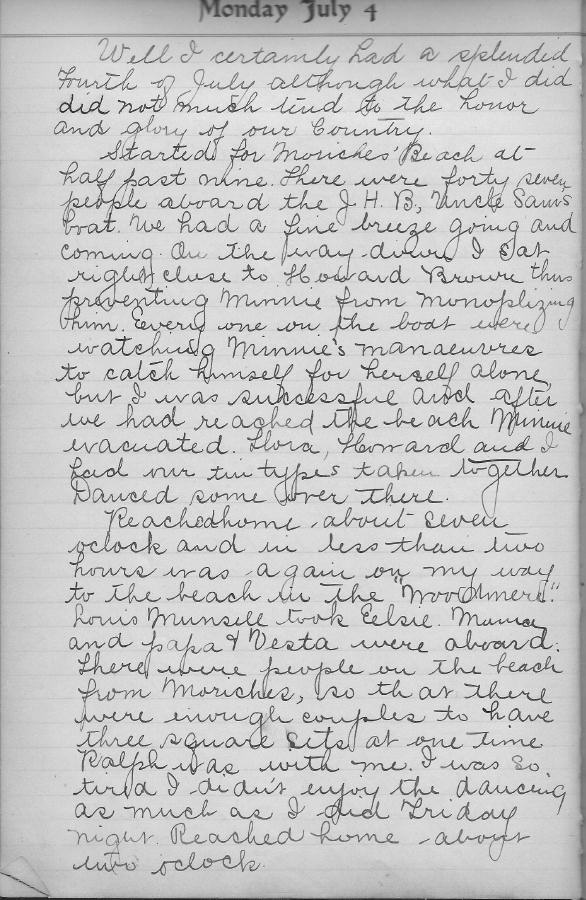 Monday July 4
Well I certainly had a splendid
Fourth of July although what I did
did not much tend to the honor
and glory of our Country.
Started for Moriches' Beach at
half past nine. There were forty seven
people aboard the J. H. B, Uncle Sam's
boat. We had a fine breeze going and
coming. On the way down I sat
right close to Howard Brown thus
preventing Minnie from monoplizing
him. Every one on the boat were
watching Minnie's manaeuvres
to catch himself for herself alone,
but I was successful and after
we had reached the beach Minnie
evacuated. Flora, Howard and I
had our tintypes taken together
Danced some over there.
Reached home about seven
oclock and in less than two
hours was again on my way
to the beach in the "Woodmere."
Louis Munsell took Eelsie. Mama
and papa & Vesta were aboard.
There were people on the beach
from Moriches, so that there
were enough couples to have
three square sets at one time
Ralph was with me. I was so
tired I didn't enjoy the dancing
as much as I did Friday
night. Reached home about
two oclock.